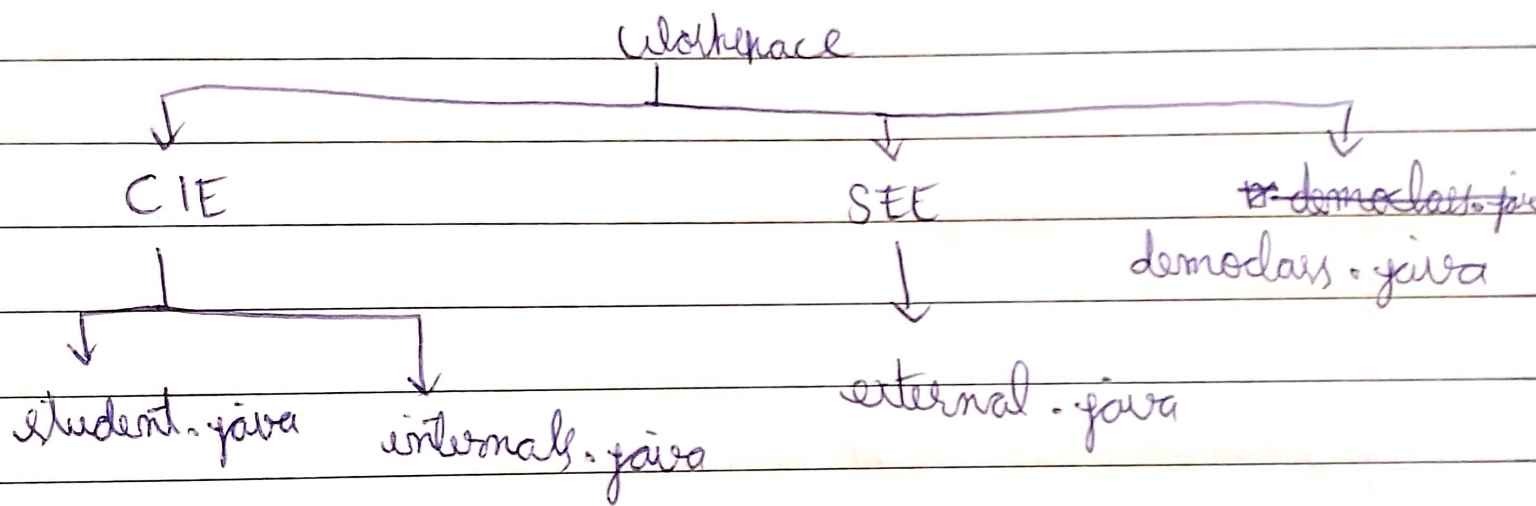 Workspace
CIE SEE
democlass.java
student.java internals.java external.java